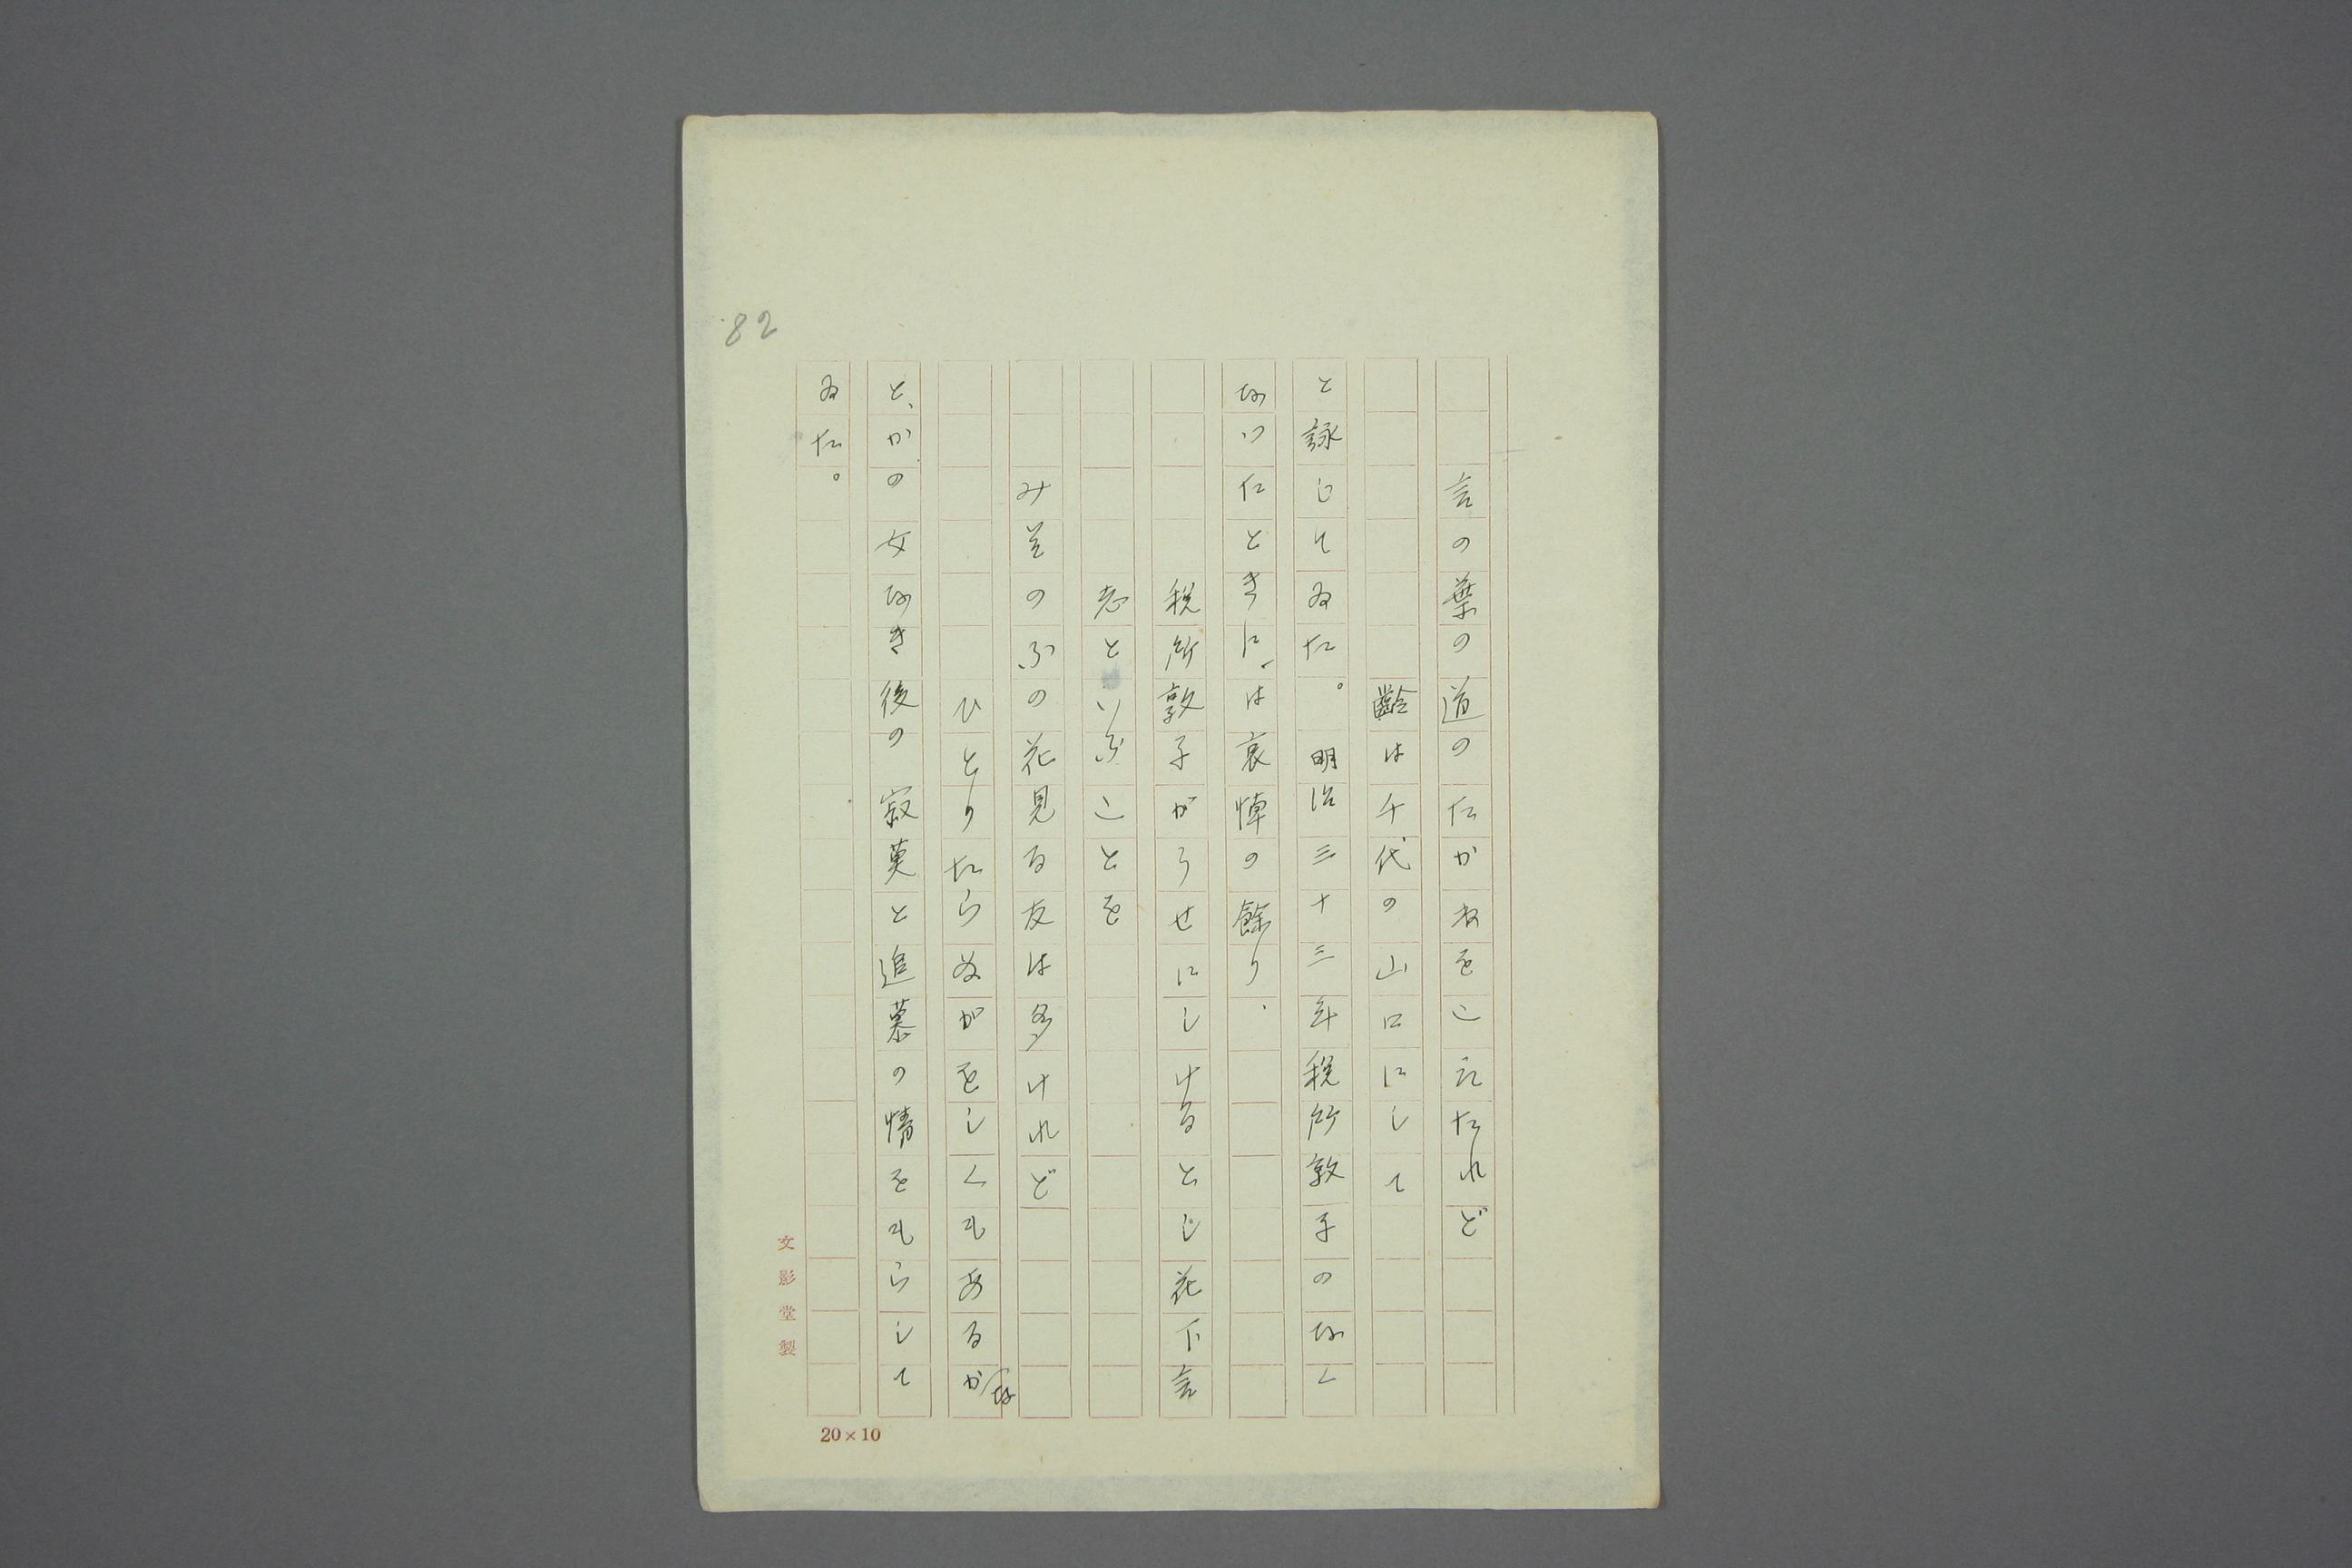 82
言の葉の道のたかねをこえたれど
齢は千代の山口にして
と詠じてゐた。明治三十三年税所敦子のなく
なつたときに、は哀悼の餘り、
税所敦子がうせにしけるとし花下言
志といふことを
み苑のふの花見る友は多けれど
ひとりたらぬがをしくもあるかな
と、かの女なき後の寂莫と追慕の情をもらして
ゐた。
文影堂製
20×10